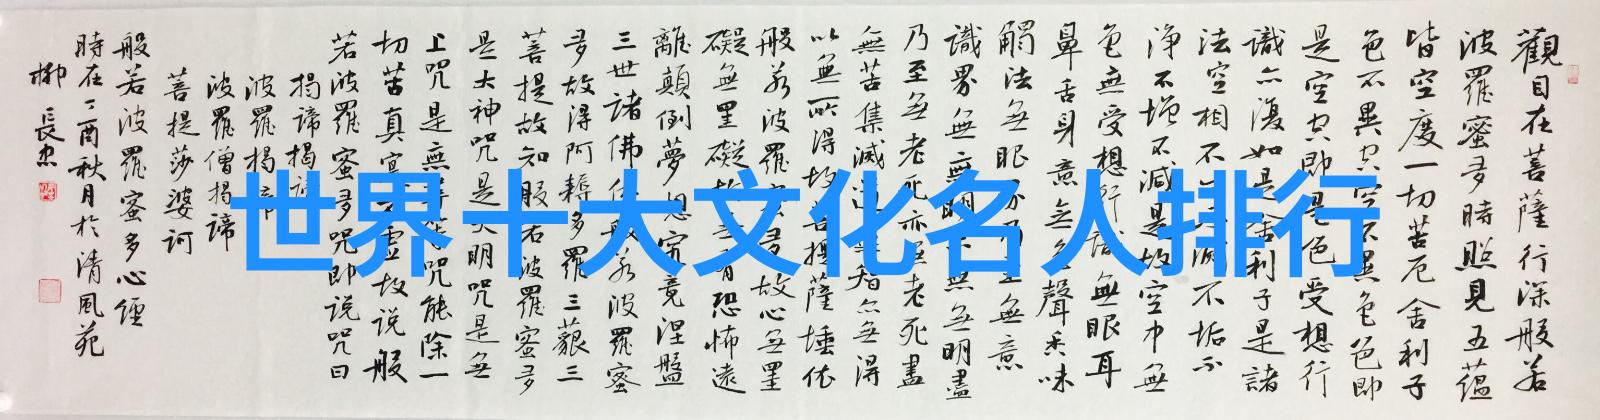 世界十大文化名人排行
觀自在菩薩行深般若
波羅蜜多時照見五蘊
皆空度一切苦厄舍利子
色不異空空不異色色即
是空空即是色受想行
識亦復如是舍利子是諸
法空相不生不滅不垢不
淨不增不減是故空中無
色無受想行識無眼耳
鼻舌身意無色聲香味
觸法無眼界乃至無意
識界無無明亦無無明盡
乃至無老死亦無老死盡
無苦集滅道無智亦無得
以無所得故菩提薩埵依
般若波羅蜜多故心無罣
礙無罣礙故無有恐怖遠
離顛倒夢想究竟涅盤
三世諸佛依般若波羅蜜
多故得阿耨多羅三藐三
菩提故知般若波羅蜜多
是大神咒是大明咒是無
上咒是無等等咒能除一
切苦真實不虛故說般
若波羅蜜多咒即说咒曰
揭諦揭諦
波羅揭諦
波羅僧揭諦
菩提莎婆訶
般若波羅蜜多心經
時在丁酉秋月於清風苑
柳長忠